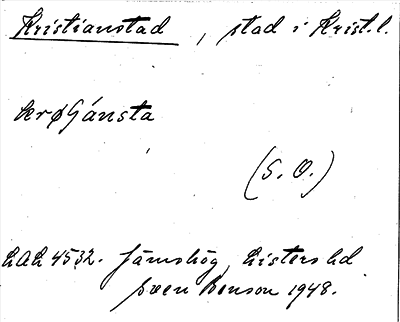 Kristianstad, stad i Krist.l.
(S. O.)
LAL 4532. Jämshög, Listers hd
Sven Benson 1948.